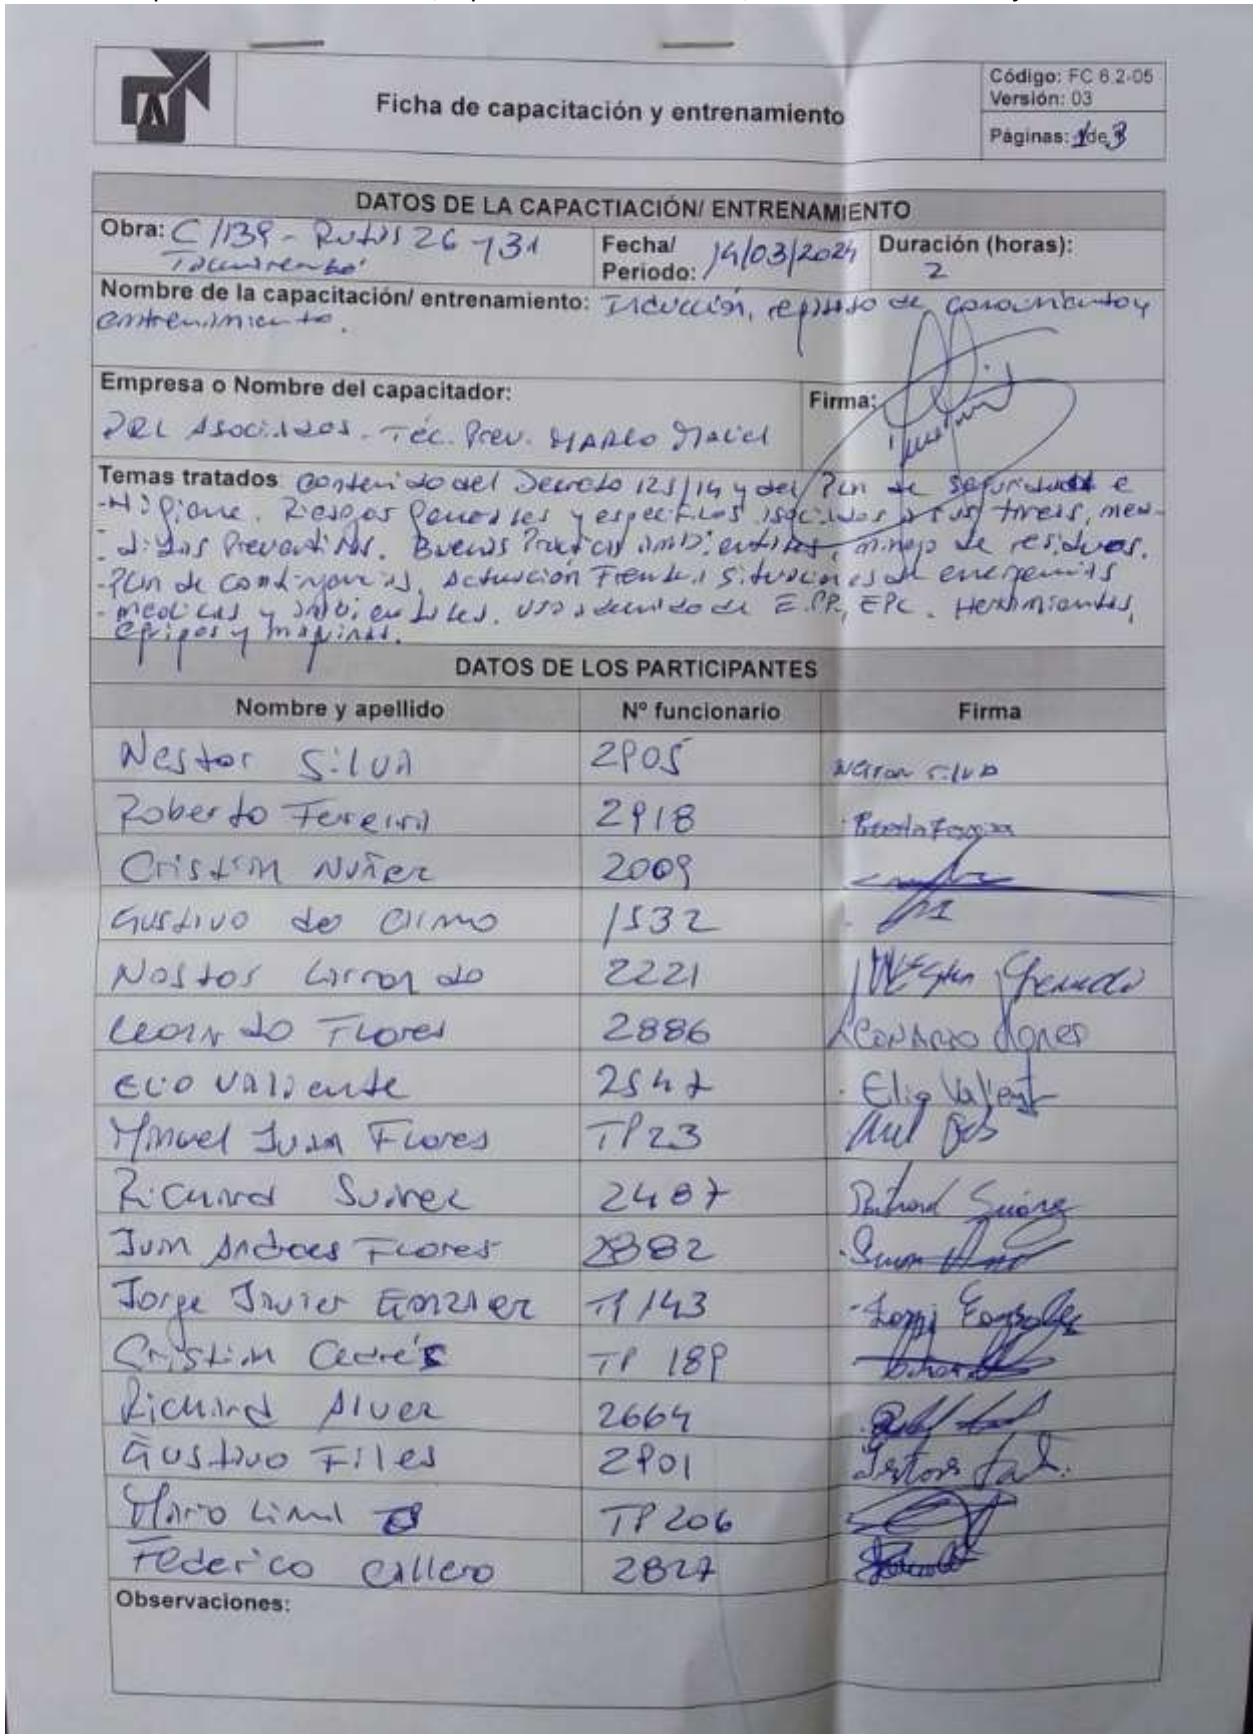 Ficha de capacitación y entrenamiento
Código: FC 6.2-05
Versión: 03
Páginas: 1 de 3
DATOS DE LA CAPACTIACIÓN/ ENTRENAMIENTO
Obra: C/139 - Rutas 26 y 31
Tacuarembó
Fecha/ Periodo: 14/03/2024
Duración (horas): 2
Nombre de la capacitación/ entrenamiento: Inducción, repaso de conocimiento y
entrenamiento.
Empresa o Nombre del capacitador:
Firma:
Asociados - Téc. Prev.
Temas tratados: Contenido del Decreto 125/14 y del Plan de seguridad e
- Higiene. Riesgos generales y específicos asociados a sus tareas, med-
- idas Preventivas. Buenas Practicas ambientales, manejo de residuos.
- Plan de contingencias, Actuación Frente a situaciones de emergencias
- medicas y ambientales. Uso adecuado de E.PP, EPC. Herramientas,
equipos y maquinas.
DATOS DE LOS PARTICIPANTES
Nombre y apellido Nº funcionario Firma
Nestor Silva 2905 Nestor Silva
Roberto Fereira 2918
Cristian Nuñez 2009
Gustavo de 1532
Nestor 2221
Leonardo Flores 2886 Leonardo Flores
Elio Valiente 2547 Elio Valient
Manuel Juan Flores TP23
Richard Suarez 2487 Richard Suárez
Juan Andres Flores 2882
Jorge Javier Gonzalez TP 143
Cristian Cedrés TP 189
Richard Alvez 2664
Gustavo Files 2901
Mario Lima TP 206
Federico Callero 2827
Observaciones: